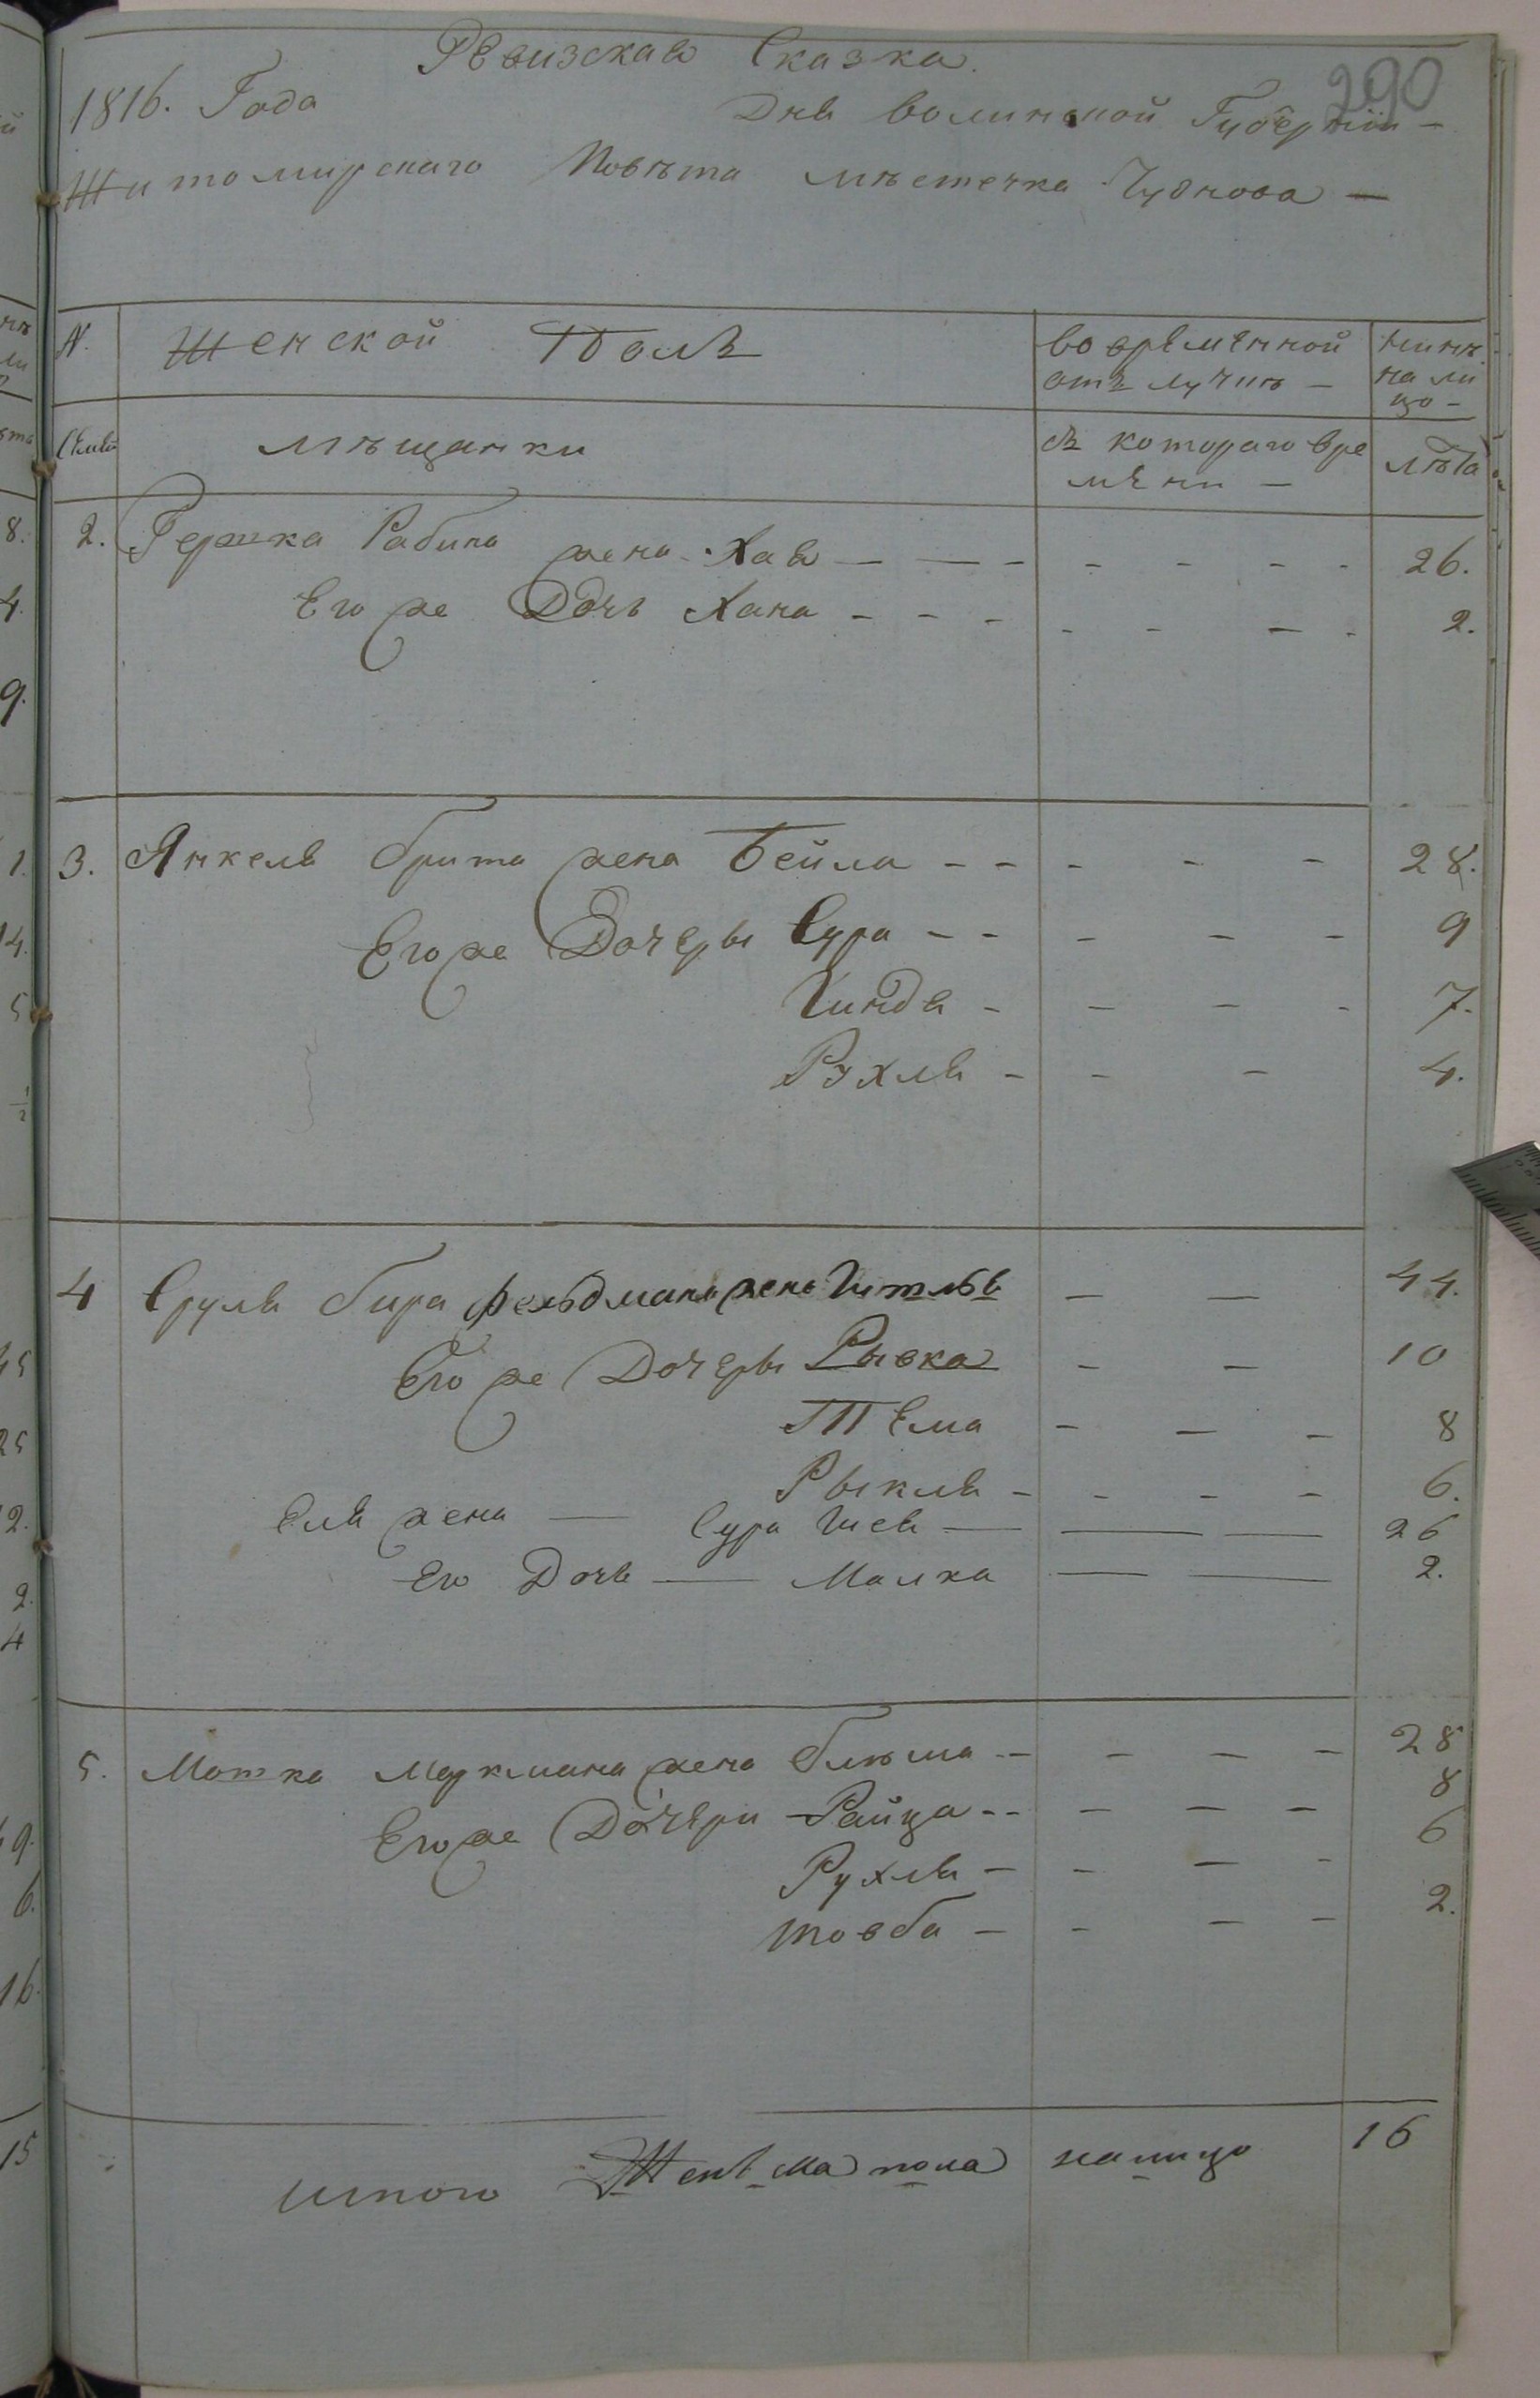 290
Ревизская Сказка.
1816. Года Дня волинской Губернїи —
Житомирскаго Повѣта мѣстечка Чуднова —
N. Женской Полъ во временной отълучкѣ — нинѣ на лицо —
Семьи мѣщанки съ котораго времени — лѣта
2. Гершка Рабина жена Хая — — - - - - - - 26.
Его же Дочь Хана - - - - - — - 2.
3. Янкеля брита жена Бейла - - - - - 28.
Его же Дочеры Сура - - - - - 9
Гинда - - - - 7.
Рухля - - - 4.
4 Сруля бира фельдмана жена Гитля — — 44.
Его же Дочеры Рывка - — 10
Тема - — - 8
Рыкля - - - - 6.
Еля жена — Сура Шея — — — 26
Его Дочь — Малка — — 2.
5. Мотка Меркмана жена блюма - - - - - 28
Его же Дочери Райца - - - - - 8
Рухля - - - - 6
товба - - - - 2.
итого Женска пола налицо 16